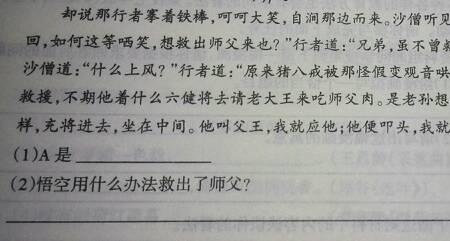 却说那行者搴着铁棒，呵呵大笑，自涧那边而来。沙僧听见
回，如何这等哂笑，想救出师父来也？”行者道：“兄弟，虽不曾
沙僧道：“什么上风？”行者道：“原来猪八戒被那怪假变观音哄
救援，不期他着什么六健将去请老大王来吃师父肉。是老孙想
样，充将进去，坐在中间。他叫父王，我就应他；他便叩头，我就
(1)A是
(2)悟空用什么办法救出了师父？